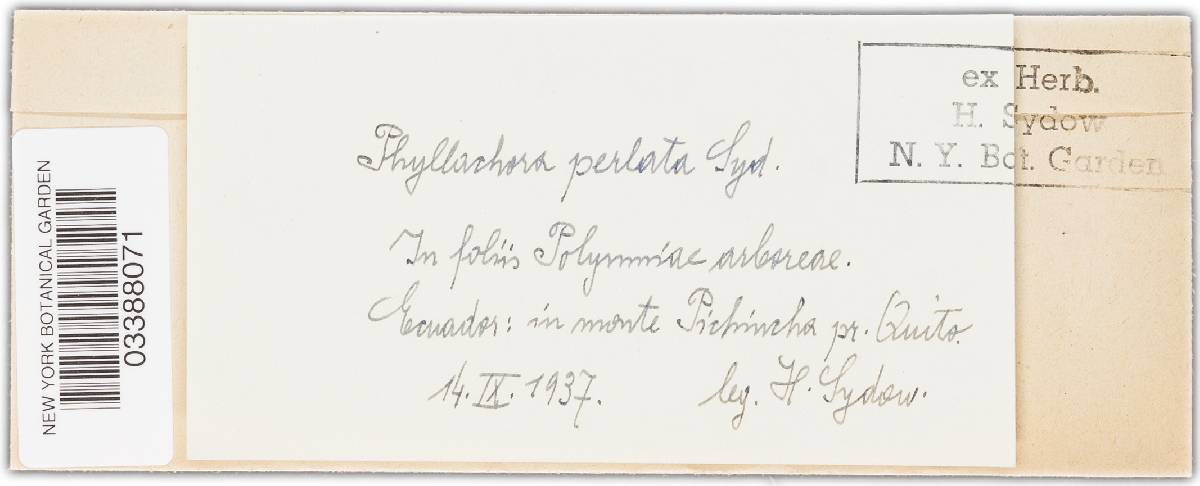 ex Herb.
H. Sydow
N. Y. Bot. Garden
Phyllachora perlata Syd.
In foliis Polymniae arboreae.
Ecuador: in monte Pichincha pr. Quito.
14. IX. 1937. leg. H. Sydow.
NEW YORK BOTANICAL GARDEN
03388071